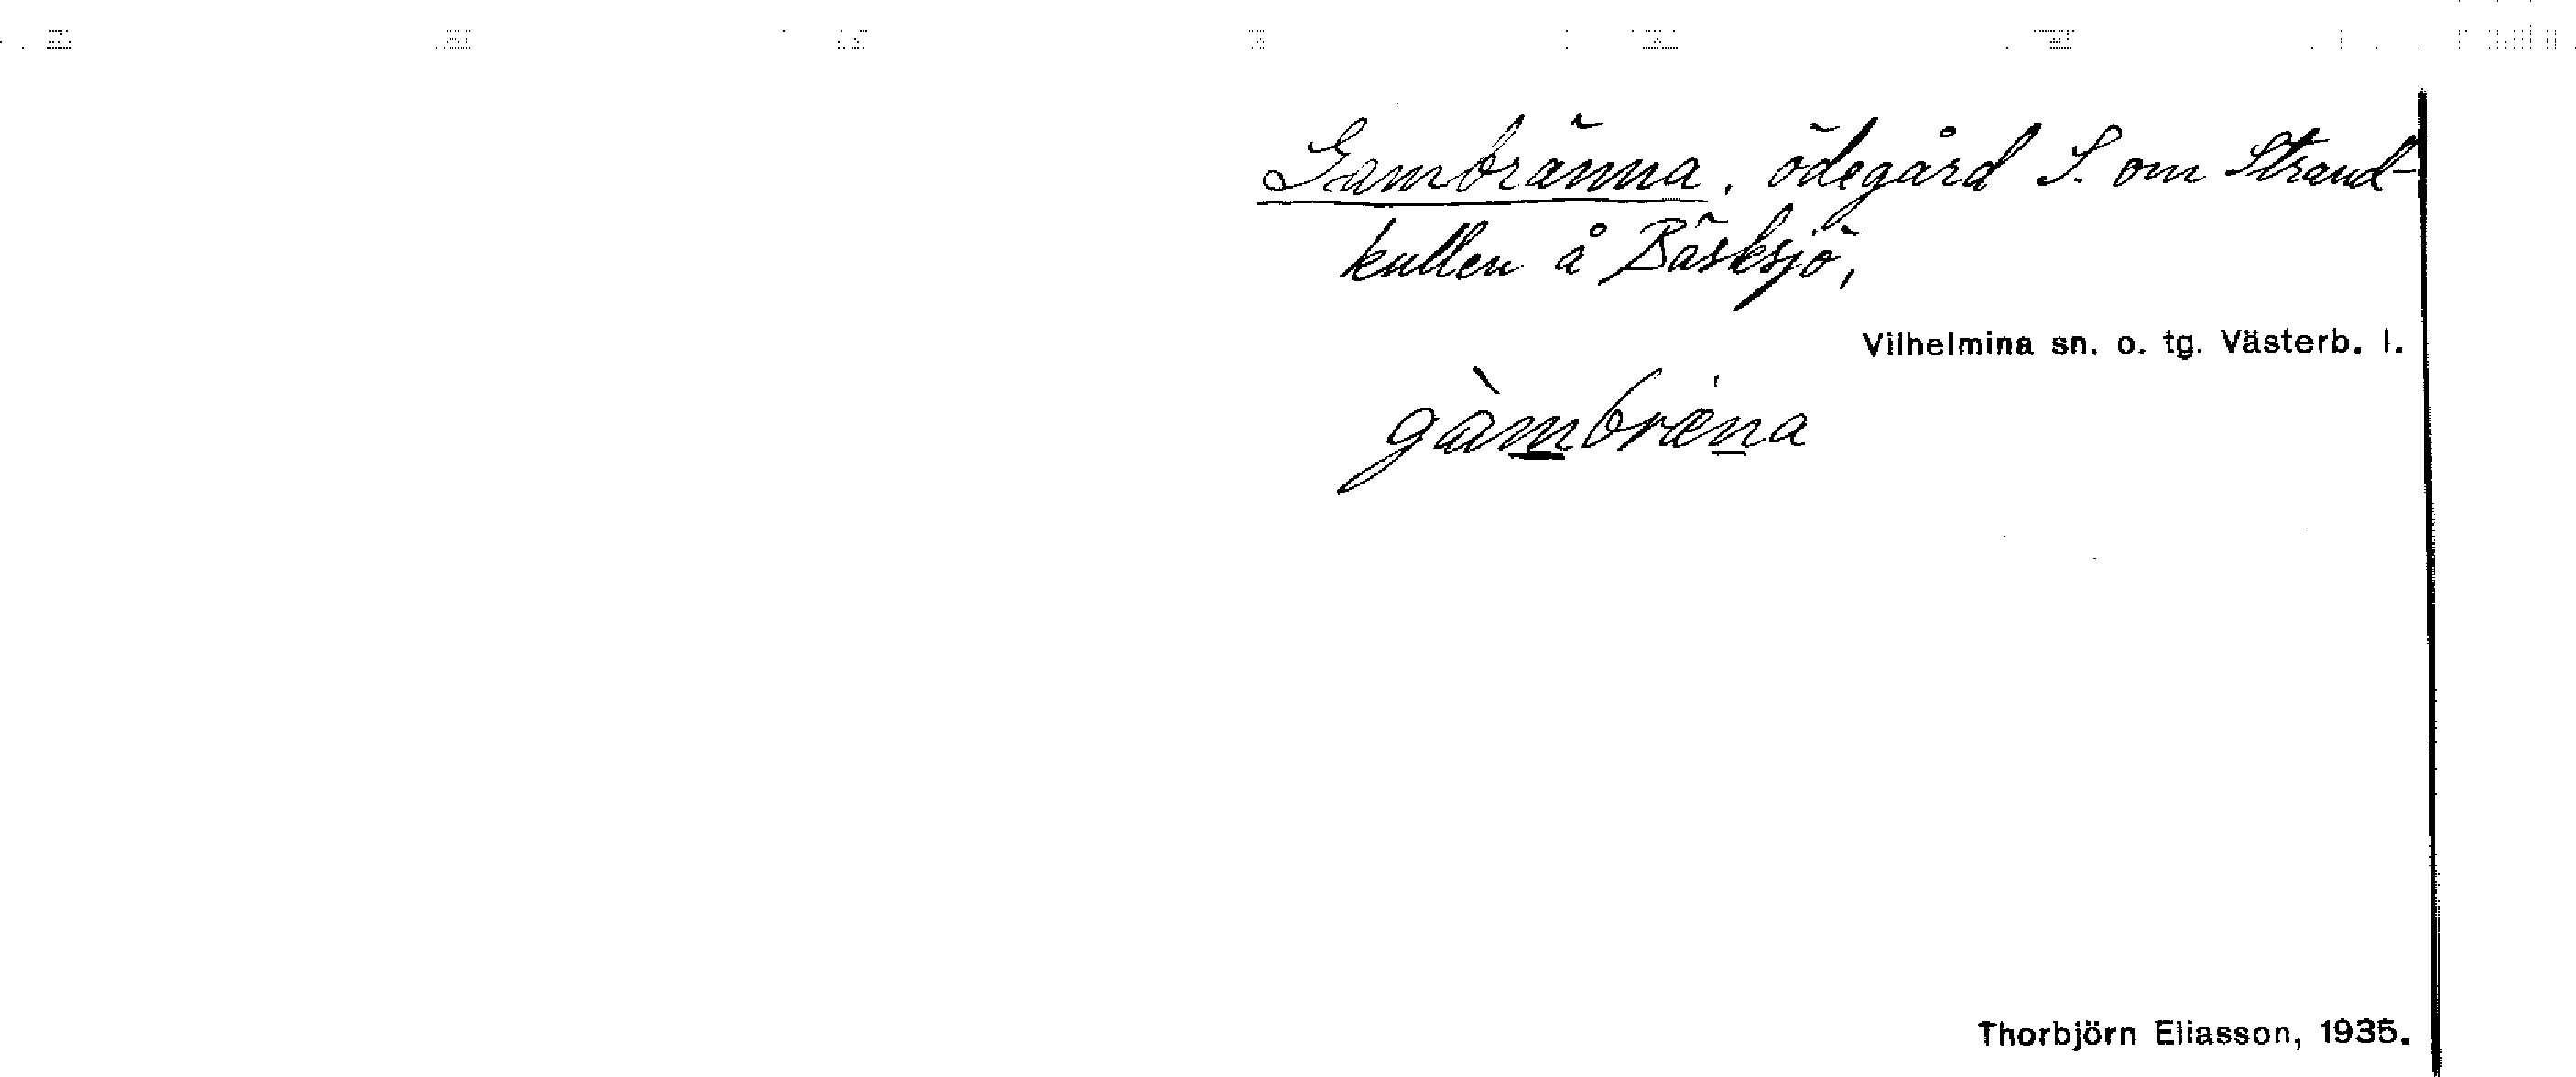 Gambränna, ödegård S. om Strand-
kullen å Bäsksjö,
Vilhelmina sn. o. tg. Västerb. l.
gàmbræ̀na
Thorbjörn Eliasson, 1935.